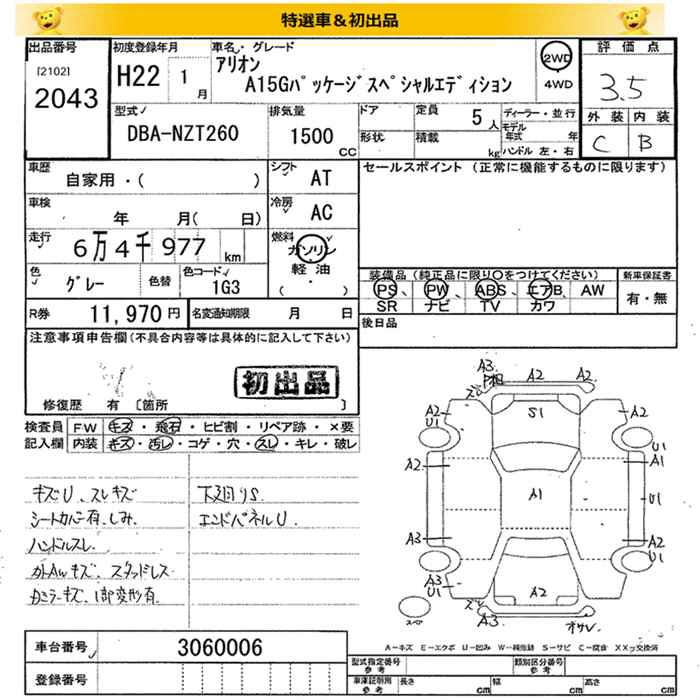 特選車＆初出品
出品番号 初度登録年月 車名・グレード 評価点
[2102] H22 1月 アリオン 2WD 3.5
2043 A15Gパッケージスペシャルエディション 4WD
型式 排気量 ドア 定員 5人 ディーラー・並行 外装 内装
DBA-NZT260 1500CC 形状 積載 kg モデル年式 年 C B
ハンドル 左・右
車歴 シフト セールスポイント (正常に機能するものに限ります)
自家用・( ) AT
車検 冷房
年 月( 日) AC
走行 燃料
6万4千977km ガソリン
軽油
( ・ )
色 色替 色コード 装備品 (純正品に限り○をつけてください) 新車保証書
グレー 1G3 PS、PW、ABS、エアB、AW 有・無
SR ナビ TV カワ
R券 11,970円 名変通知期限 月 日 後日品
注意事項申告欄(不具合内容等は具体的に記入して下さい)
初出品
修復歴 有 [箇所 ]
検査員 FW キズ・飛石・ヒビ割・リペア跡・×要
記入欄 内装 キズ・汚レ・コゲ・穴・スレ・キレ・破レ
キズU、スレキズ 下廻りS
シートカバー有、しみ エンドパネルU
ハンドルスレ
スタッドレス
ミラーキズ、1部変形有
A3 A2 A2
S1
A2 A2
U1 U1
A2 A1
A1 U1
A3 A2
U1
A3
U1 A2
A3
スペア
A－キズ E－エクボ U－凹み W－補修跡 S－サビ C－腐食 XX₂交換済
車台番号 3060006 型式指定番号 参考 類別区分番号 参考
登録番号 車庫証明用 参考 長さ cm 幅 cm 高さ cm